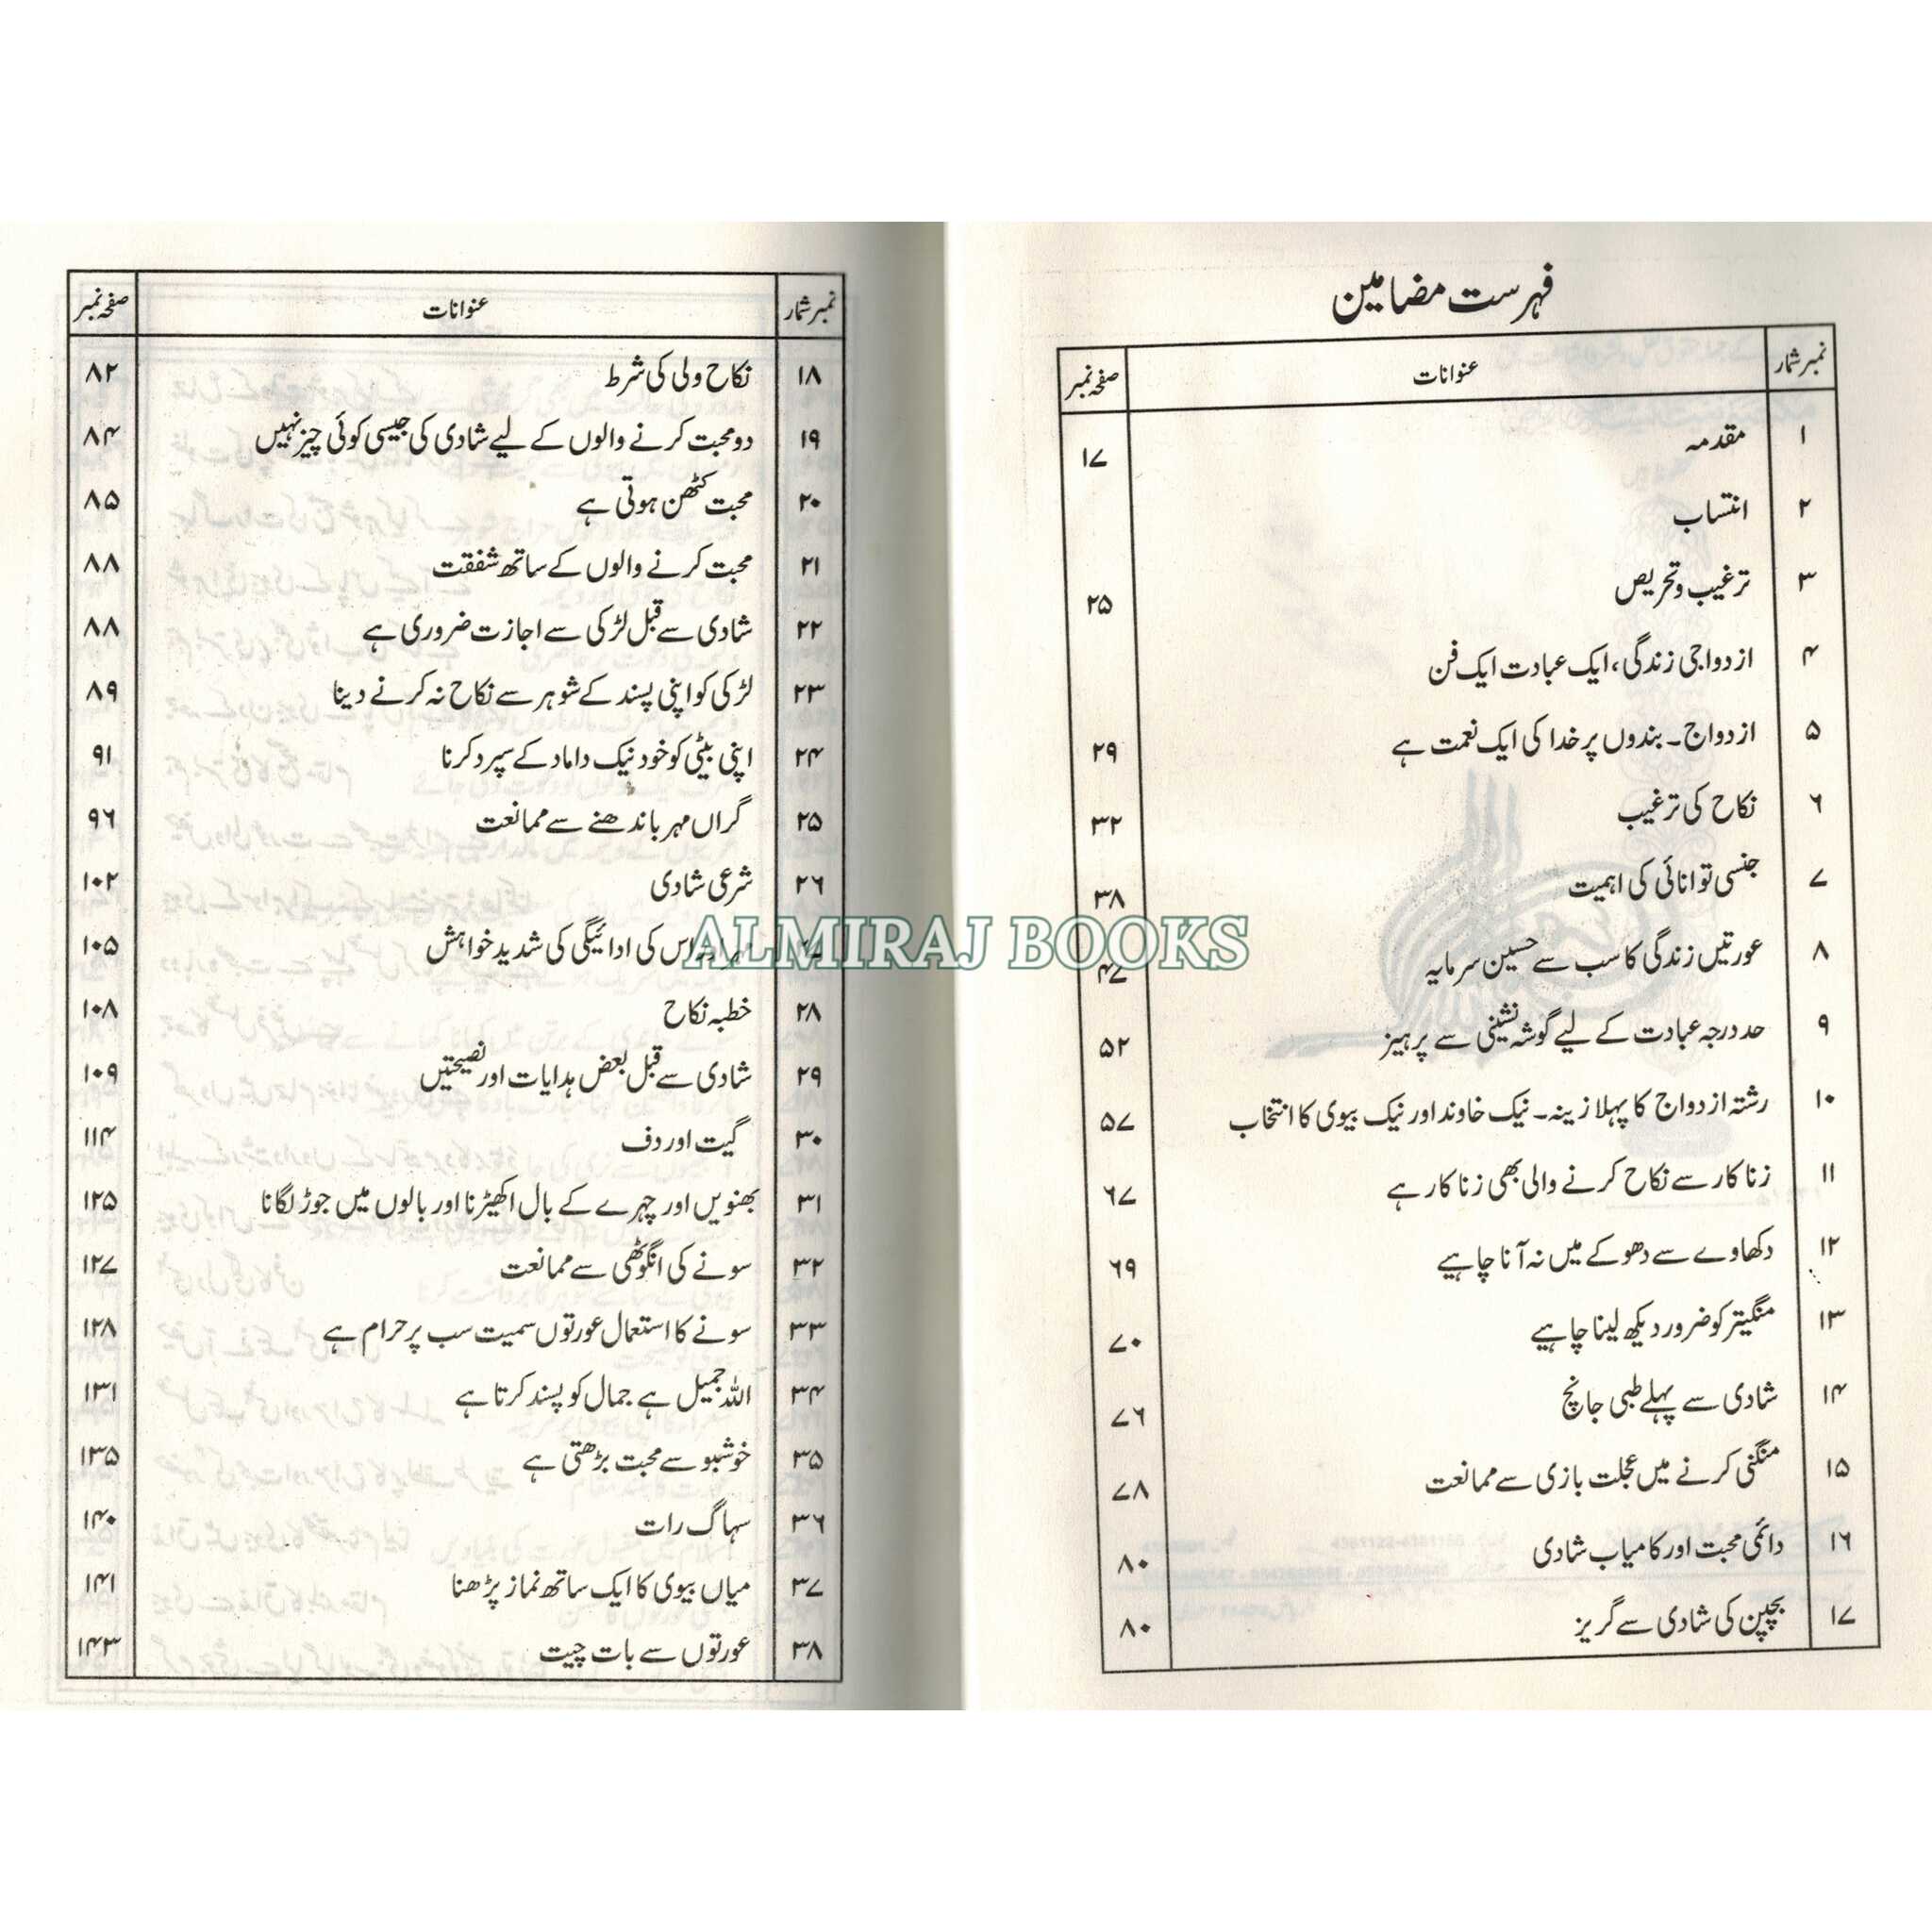 فہرست مضامین
نمبر شمار عنوانات صفحہ نمبر
۱ مقدمہ ۱۷
۲ انتساب
۳ ترغیب و تحریص ۲۵
۴ ازدواجی زندگی، ایک عبادت ایک فن
۵ ازدواج۔ بندوں پر خدا کی ایک نعمت ہے ۲۹
۶ نکاح کی ترغیب ۳۲
۷ جنسی توانائی کی اہمیت ۳۸
۸ عورتیں زندگی کا سب سے حسین سرمایہ ۴۷
۹ حد درجہ عبادت کے لیے گوشہ نشینی سے پرہیز ۵۲
۱۰ رشتہ ازدواج کا پہلا زینہ۔ نیک خاوند اور نیک بیوی کا انتخاب ۵۷
۱۱ زنا کار سے نکاح کرنے والی بھی زنا کار ہے ۶۷
۱۲ دکھاوے سے دھوکے میں نہ آنا چاہیے ۶۹
۱۳ منگیتر کو ضرور دیکھ لینا چاہیے ۷۰
۱۴ شادی سے پہلے طبی جانچ ۷۶
۱۵ منگنی کرنے میں عجلت بازی سے ممانعت ۷۸
۱۶ دائمی محبت اور کامیاب شادی ۸۰
۱۷ بچپن کی شادی سے گریز ۸۰
نمبر شمار عنوانات صفحہ نمبر
۱۸ نکاح ولی کی شرط ۸۲
۱۹ دو محبت کرنے والوں کے لیے شادی کی جیسی کوئی چیز نہیں ۸۴
۲۰ محبت کٹھن ہوتی ہے ۸۵
۲۱ محبت کرنے والوں کے ساتھ شفقت ۸۸
۲۲ شادی سے قبل لڑکی سے اجازت ضروری ہے ۸۸
۲۳ لڑکی کو اپنی پسند کے شوہر سے نکاح نہ کرنے دینا ۸۹
۲۴ اپنی بیٹی کو خود نیک داماد کے سپرد کرنا ۹۱
۲۵ گراں مہر باندھنے سے ممانعت ۹۶
۲۶ شرعی شادی ۱۰۲
اس کی ادائیگی کی شدید خواہش ۱۰۵
۲۸ خطبہ نکاح ۱۰۸
۲۹ شادی سے قبل بعض ہدایات اور نصیحتیں ۱۰۹
۳۰ گیت اور دف ۱۱۴
۳۱ بھنویں اور چہرے کے بال اکھیڑنا اور بالوں میں جوڑ لگانا ۱۲۵
۳۲ سونے کی انگوٹھی سے ممانعت ۱۲۷
۳۳ سونے کا استعمال عورتوں سمیت سب پر حرام ہے ۱۲۸
۳۴ اللہ جمیل ہے جمال کو پسند کرتا ہے ۱۳۱
۳۵ خوشبو سے محبت بڑھتی ہے ۱۳۵
۳۶ سہاگ رات ۱۴۰
۳۷ میاں بیوی کا ایک ساتھ نماز پڑھنا ۱۴۱
۳۸ عورتوں سے بات چیت ۱۴۳
ALMIRAJ BOOKS